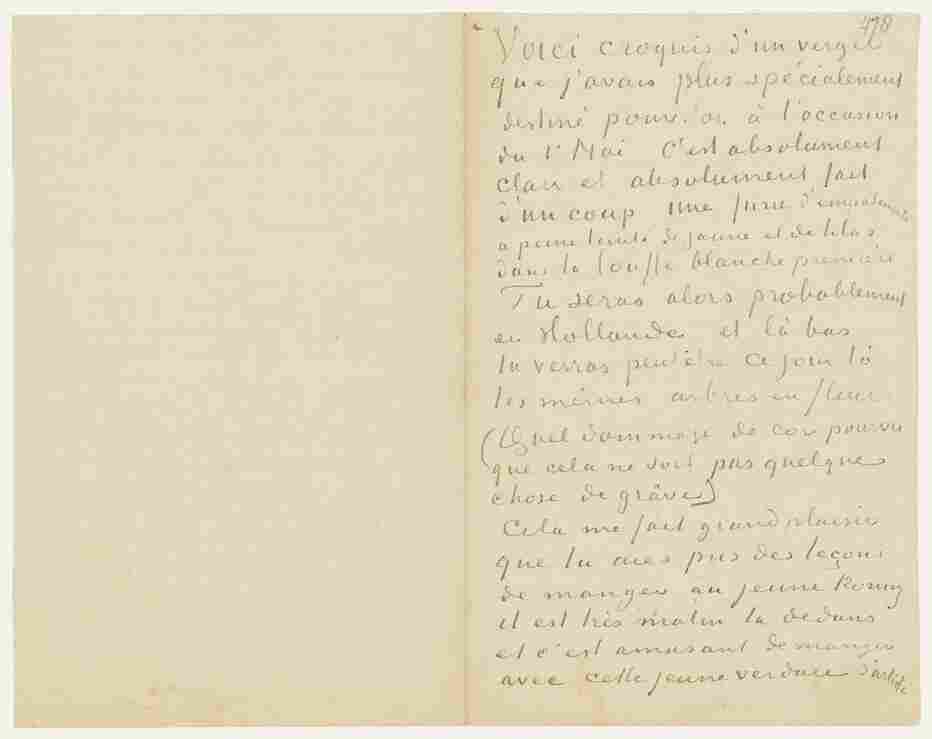 478
Voici croquis d'un verger
que j'avais plus spécialement
destiné pour toi à l'occasion
du 1er Mai C'est absolument
clair et absolument fait
d'un coup une furie d'empatements
à peine teinté de jaune et de lilas
dans la touffe blanche première
Tu seras alors probablement
en Hollande et là bas
tu verras peut être ce jour là
les mêmes arbres en fleur
(Quel dommage de Cor pourvu
que cela ne soit pas quelque
chose de grâve)
Cela me fait grand plaisir
que tu aies pris des leçons
de manger au jeune Koning
il est très malin la dedans
et c'est amusant de manger
avec cette jeune verdure d'artiste